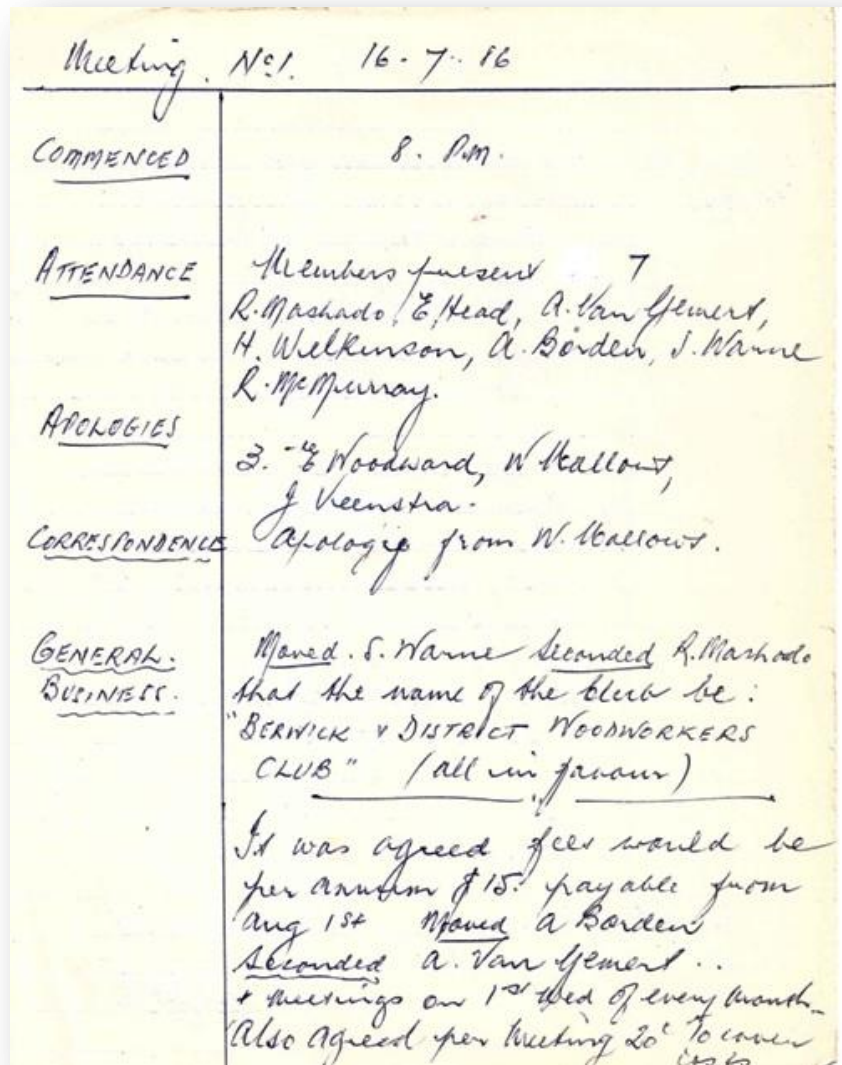 Meeting. No1. 16-7-86
COMMENCED 8. P.M.
ATTENDANCE Members present 7
R. Mashado, E, Head, A. Van Gemert,
H. Wilkinson, A. Borden, S. Warne
R. McMurray.
APOLOGIES
3. - E Woodward, W Mallows,
J Veenstra.
CORRESPONDENCE Apologie from W. Mallows.
GENERAL. Moved. S. Warne Seconded R. Mashado
BUSINESS. that the name of the Club be:
"BERWICK & DISTRICT WOODWORKERS
CLUB" (all in favour)
It was agreed fees would be
per annum $15. payable from
Aug 1st Moved A Borden
Seconded A. Van Gemert..
+ Meetings on 1st Wed of every month-
Also Agreed per Meeting 20c To cover
costs